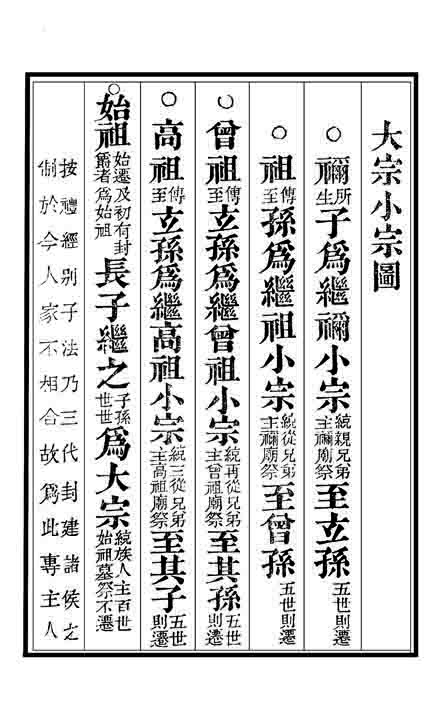 大宗小宗圖
○禰所生子爲繼禰小宗統親兄弟主禰廟祭至玄孫五世則遷
○祖傳至孫爲繼祖小宗統從兄弟主禰廟祭至曾孫五世則遷
○曾祖傳至玄孫爲繼曾祖小宗統再從兄弟主曾祖廟祭至其孫五世則遷
○高祖傳至玄孫爲繼高祖小宗統三從兄弟主高祖廟祭至其子五世則遷
○始祖始遷及初有封爵者爲始祖長子繼之子孫世世爲大宗統族人主百世始祖墓祭不遷
按禮經別子法乃三代封建諸侯之
制於今人家不相合故爲此專主人